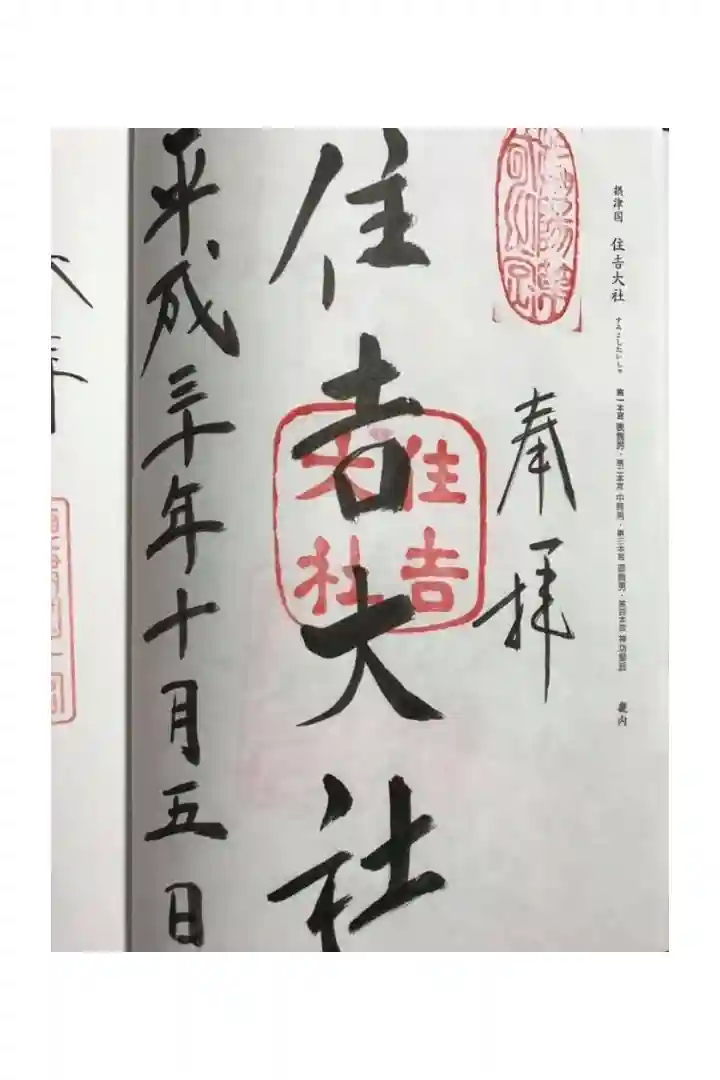 摂津国 住吉大社 すみよしたいしゃ 第一本宮 底筒男・第二本宮 中筒男・第三本宮 表筒男・第四本宮 神功皇后 畿内
奉拝
住吉大社
住吉
大社
平成三十年十月五日